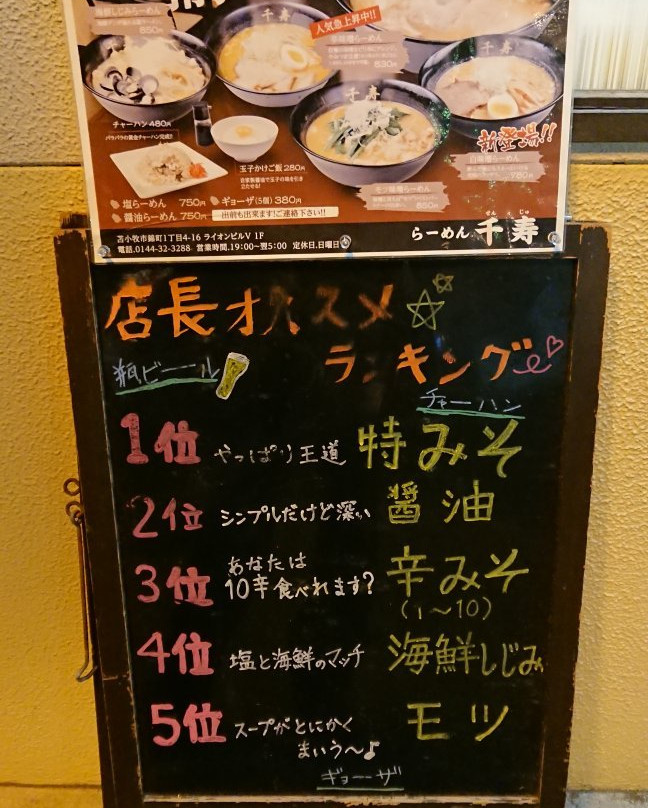 海鮮しじみらーめん
850円
人気急上昇中!!
辛味噌らーめん
830円
千寿
千寿
千寿
チャーハン 480円
パラパラの黄金チャーハン完成!!
玉子かけご飯 280円
自家製醤油で玉子の味を引き
立たせる!
新登場!!
白味噌らーめん
780円
モツ味噌らーめん
850円
塩らーめん 750円
ギョーザ(5個) 380円
醤油らーめん 750円
出前も出来ます!ご連絡下さい!!
苫小牧市錦町1丁目4-16 ライオンビルV 1F
電話.0144-32-3288 営業時間.19:00〜翌5:00 定休日.日曜日
らーめん 千寿
せんじゅ
店長オススメ
ランキング
瓶ビール
チャーハン
1位 やっぱり王道 特みそ
2位 シンプルだけど深い 醤油
3位 あなたは
10辛食べれます? 辛みそ
(1〜10)
4位 塩と海鮮のマッチ 海鮮しじみ
5位 スープがとにかく
まいう〜♪ モツ
ギョーザ